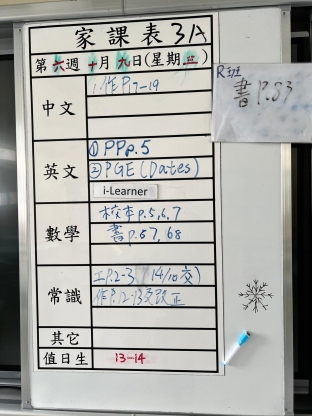 家課表 3A
第六週 十月九日(星期三)
中文
1 作P.17-19
英文
① PP p.5
② PGE (Dates)
i-Learner
數學
校本 p.5,6,7
書 p.67,68
常識
工P.2-3 (14/10交)
作P.12-13交改正
其它
值日生
13-14
R班
書 P.83